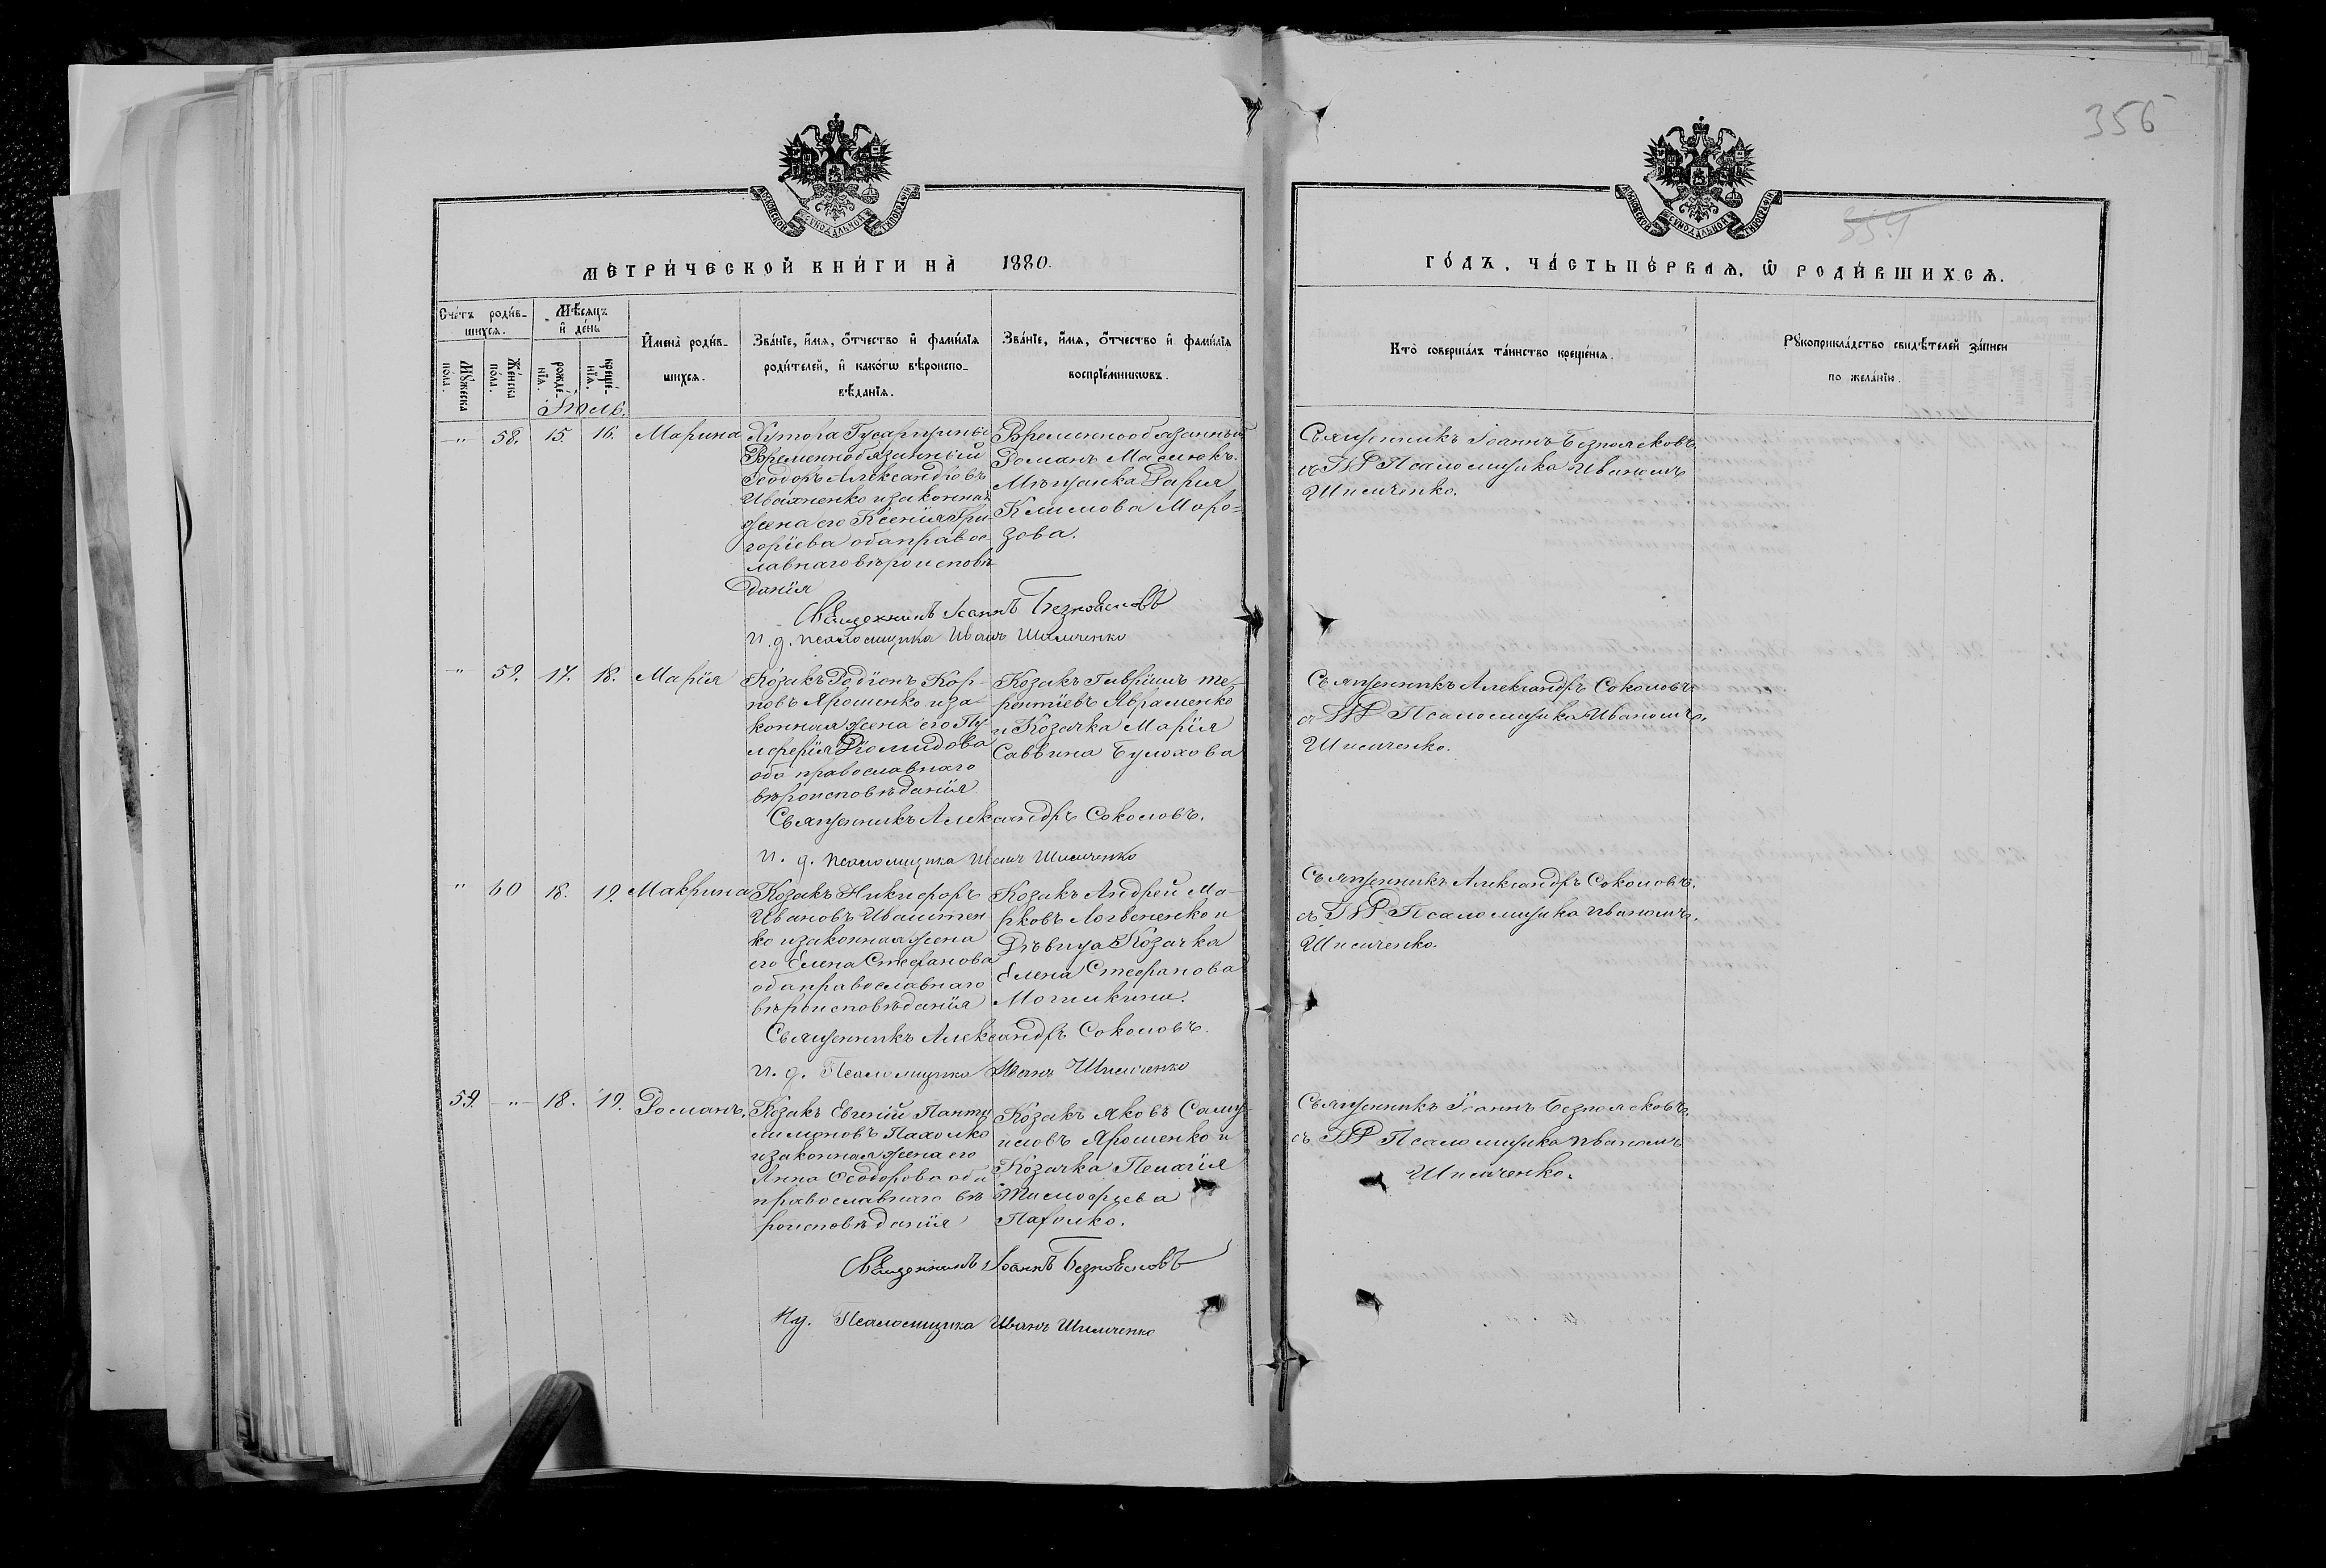 356
МОСКОВСКОЙ СѴНОДАЛЬНОЙ ТИПОГРАФІИ
МОСКОВСКОЙ СѴНОДАЛЬНОЙ ТИПОГРАФІИ
МЕТРИ́ЧЕСКОЙ КНИ́ГИ НА̀ 1880.
ГО́ДЪ, ЧА́СТЬ ПЕ́РВАЯ, Ѡ҆ РОДИ́ВШИХСЯ.
Сче́тъ роди́в-
шихся.
Мꙋ́жеска по́ла.
Же́нска по́ла.
Мѣ́сяцъ
и҆ де́нь
рожде́-
нїѧ.
креще́-
нїѧ.
Іюль.
И҆мена̀ роди́в-
шихся.
Зва́нїе, и҆́мѧ, ѻ҆́тчество и҆ фами́лїѧ
роди́телей, и҆ како́гѡ вѣроиспо-
вѣ́данїѧ.
Зва́нїе, и҆́мѧ, ѻ҆́тчество и҆ фами́лїѧ
воспрїе́мникѡвъ.
Кто̀ соверша́лъ та́инство креще́нїѧ.
Рꙋкоприкла́дство свидѣ́телей за́писи
по жела́нїю.
-"- 58. 15. 16. Марина
Хутора
Временнообязанный
Ѳеодоръ Александровъ
Ивахненко и законная
жена его Ксенія Гри-
горіева оба правос-
лавнаго вѣроисповѣ-
данія
Временнообязанный
Романъ Маслюкъ.
Мѣщанка Дарія
Климова Моро=
зова.
Священникъ Іоаннъ Безпоясковъ
съ И Д Псаломщика Иваномъ
Шимченко.
Священникъ Іоаннъ Безпоясковъ
И. д. псаломщика Иванъ Шимченко
-"- 59. 17. 18. Марія
Козакъ Родіонъ Кар-
повъ Ярошенко и за-
конная жена его Пу
лхерія Діомидова
оба православнаго
вѣроисповѣданія
Козакъ Гавріилъ Те-
рентіевъ Авраменко
и Козачка Марія
Саввина Булохова
Священникъ Александръ Соколовъ
съ И Д Псаломщика Иваномъ
Шимченко.
Священникъ Александръ Соколовъ.
И. д. псаломщика Иванъ Шимченко
" 60 18. 19. Макрина
Козакъ Никифоръ
Ивановъ Ивашчен
ко и законная жена
его Елена Стефанова
оба православнаго
вѣроисповѣданія
Козакъ Андрей Ма-
рковъ Логвененко и
Дѣвица Козачка
Елена Стефанова
Священникъ Александръ Соколовъ.
съ И Д Псаломщика Иваномъ
Шимченко.
Священникъ Александръ Соколовъ.
И. д. Псаломщика Иванъ Шимченко
59. -"- 18. 19. Романъ.
Козакъ Евгеній Панте
лимоновъ Пахолко
и законная жена его
Анна Ѳеодорова оба
православнаго вѣ
роисповѣданія
Козакъ Яковъ Саму-
иловъ Ярошенко и
Козачка Пелагія
Тимофеева
Пахолко.
Священникъ Іоаннъ Безпоясковъ
съ И Д Псаломщика Иваномъ
Шимченко.
Священникъ Іоаннъ Безпоясковъ
И д. Псаломщика Иванъ Шимченко